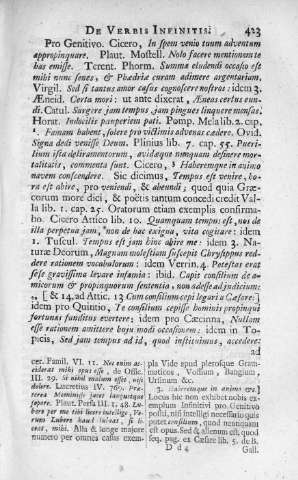 DE VERBIS INFINITIS. 423
Pro Genitivo. Cicero, In spem venio tuum adventum
appropinquare. Plaut. Mostell. Nolo facere mentionem te
has emisse. Terent. Phorm. Summæ eludendi occasio est
mihi nunc senes, & Phædriæ curam adimere argentariam.
Virgil. Sed si tantus amor casus cognoscere nostros: idem 3.
Æneid. Certa mori: ut ante dixerat, Æneas certus eun-
di. Catul. Surgere jam tempus, jam pingues linquere mensas,
Horat. Indocilis pauperiem pati. Pomp. Mela lib. 2. cap.
1. Famam habent, solere pro victimis advenas cædere. Ovid.
Signa dedi venisse Deum. Plinius lib. 7. cap. 55. Pueri-
lium ista deliramentorum, avidæque nunquam desinere mor-
talitatis, commenta sunt. Cicero, Haberemque in animo
navem conscendere. Sic dicimus, Tempus est venire, ho-
ra est abire, pro veniendi, & abeundi; quod quia Græ-
corum more dici, & poëtis tantum concedi credit Val-
la lib. 1. cap. 25. Oratorum etiam exemplis confirma-
bo. Cicero Attico lib. 10. Quamquam tempus est, nos de
illa perpetua jam, non de hac exigua, vita cogitare: idem
1. Tuscul. Tempus est jam hinc abire me: idem 3. Na-
turæ Deorum, Magnam molestiam suscepit Chrysippus red-
dere rationem vocabulorum: idem Verrin. 4. Potestas erat
sese gravissima levare infamia: ibid. Capit consilium de a-
micorum & propinquorum sententia, non adesse ad judicium:
[& 14. ad Attic. 13 Cum consilium cepi legari a Cæsare:]
idem pro Quintio, Te consilium cepisse hominis propinqui
fortunas funditus evertere: idem pro Cæcinna, Nullam
esse rationem amittere hujusmodi occasionem: idem in To-
picis, Sed jam tempus ad id, quod instituimus, accedere:
ad
cer. Famil. VI. 11. Nec enim ac-
ciderat mihi opus esse, de Offic.
III. 29. Si nihil malum esset, nisi
dolere. Lucretius IV. 769. Præ-
terea Meminisse jacet languetque
sopore. Plaut. Persa III. 1. 48. Lu-
bere per me tibi licere intellige, Ve-
rum Lubere haud lubeat, si li-
ceat, mihi. Alia & longe majore
numero per omnes casus exem-
pla Vide apud plerosque Gram-
maticos, Vossium, Bangium,
Ursinum &c.
3. Haberemque in animo &c.]
Locus hic non exhibet nobis ex-
emplum Infinitivi pro Genitivo
positi, nisi intelligi necessario quis
putet consilium, quod nequaquam
est opus. Sed & alienum est, quod
seq. pag. ex Cæsare lib. 5. de B.
D d 4
Gall.